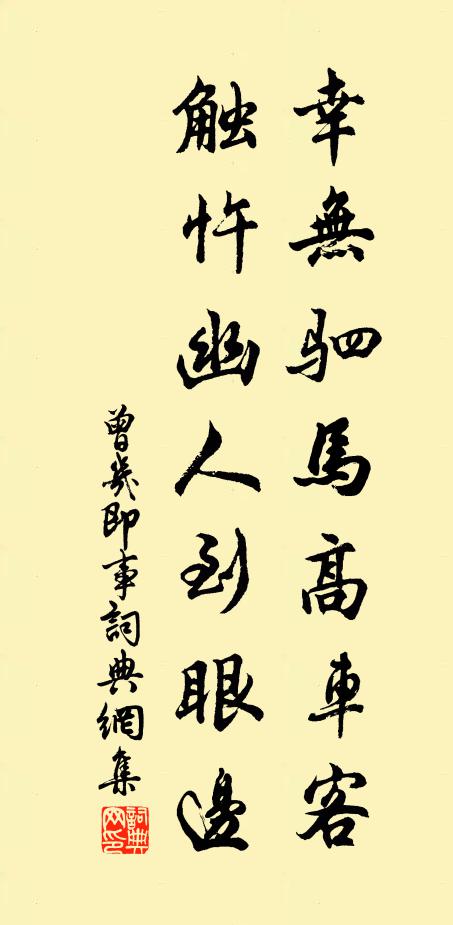 幸無駟馬高車客
触忤幽人到眼邊
曾幾即事詞典網集
詞典網印